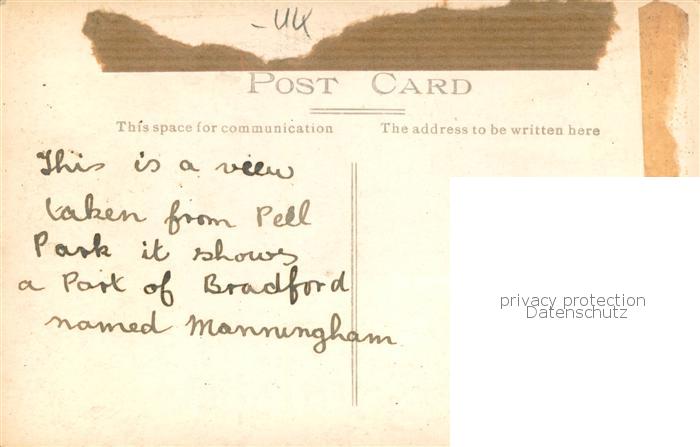 -UK
POST CARD
This space for communication
The address to be written here
This is a view
taken from Pell
Park it shows
a Part of Bradford
named Manningham
privacy protection
Datenschutz